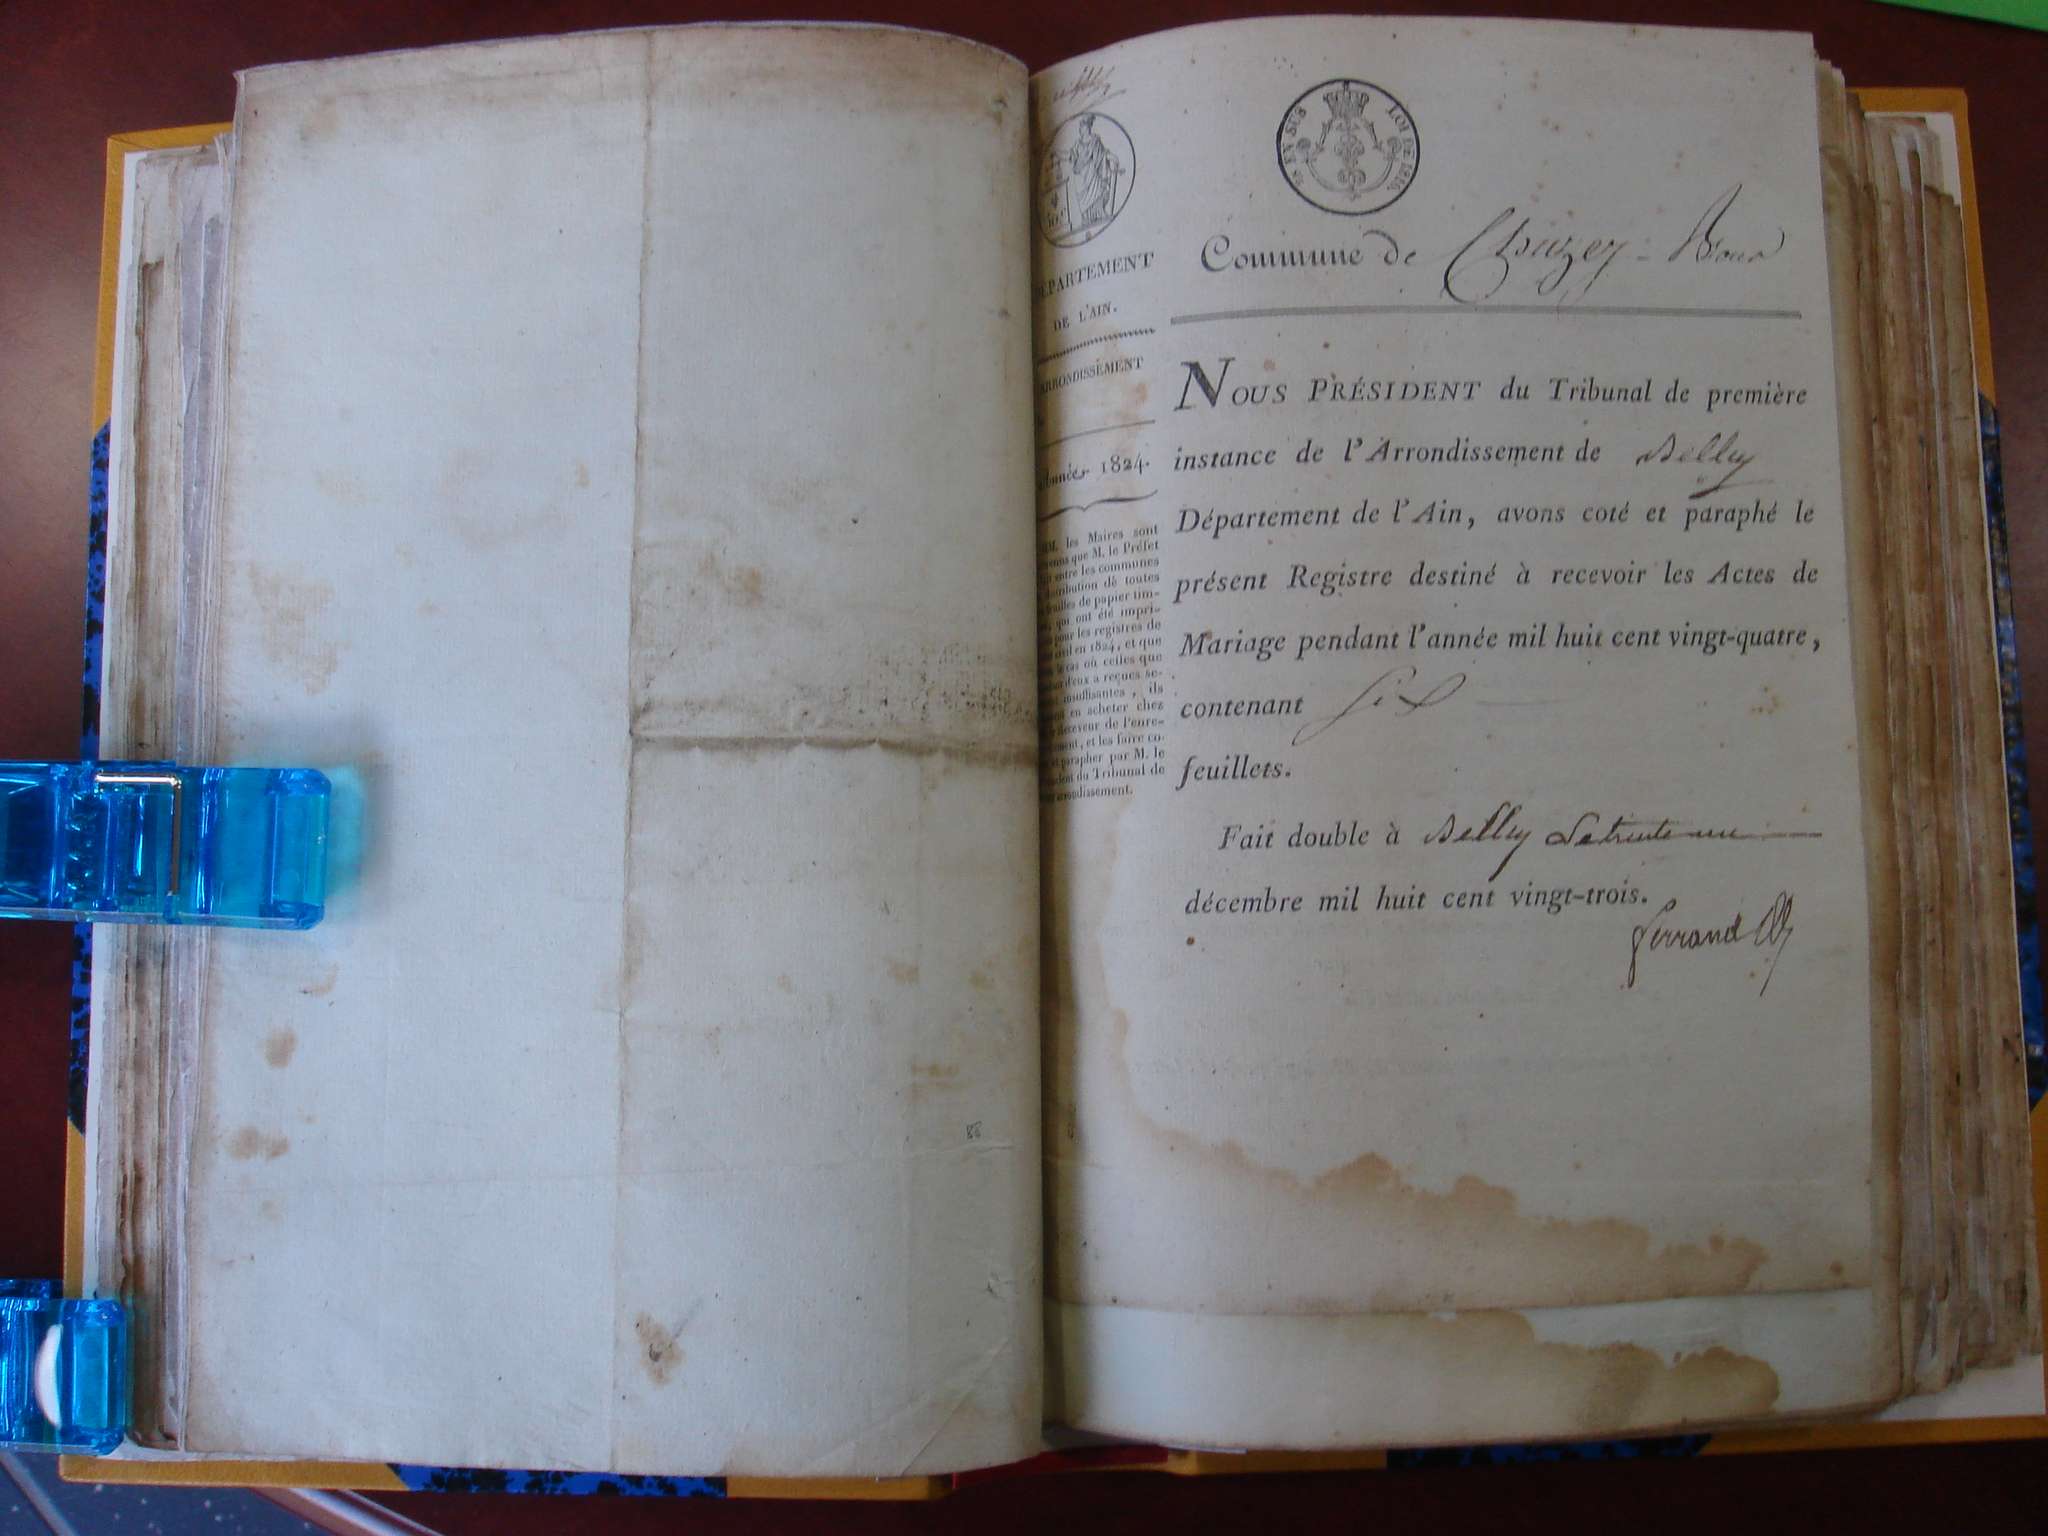 DÉPARTEMENT
DE L'AIN.
ARRONDISSEMENT
Année 1824.
MM. les Maires sont
que M. le Préfet
entre les communes
distribution de toutes
feuilles de papier tim-
qui ont été impri-
pour les registres de
civil en 1824, et que
le cas où celles que
d'eux a reçues se-
insuffisantes, ils
en acheter chez
Receveur de l'enre-
et les faire co-
et parapher par M. le
du Tribunal de
arrondissement.
EN SUS LOI DE 1816
Commune de
NOUS PRÉSIDENT du Tribunal de première
instance de l'Arrondissement de Belley
Département de l'Ain, avons coté et paraphé le
présent Registre destiné à recevoir les Actes de
Mariage pendant l'année mil huit cent vingt-quatre,
contenant Six
feuillets.
Fait double à Belley Le trente un
décembre mil huit cent vingt-trois.
Ferrand